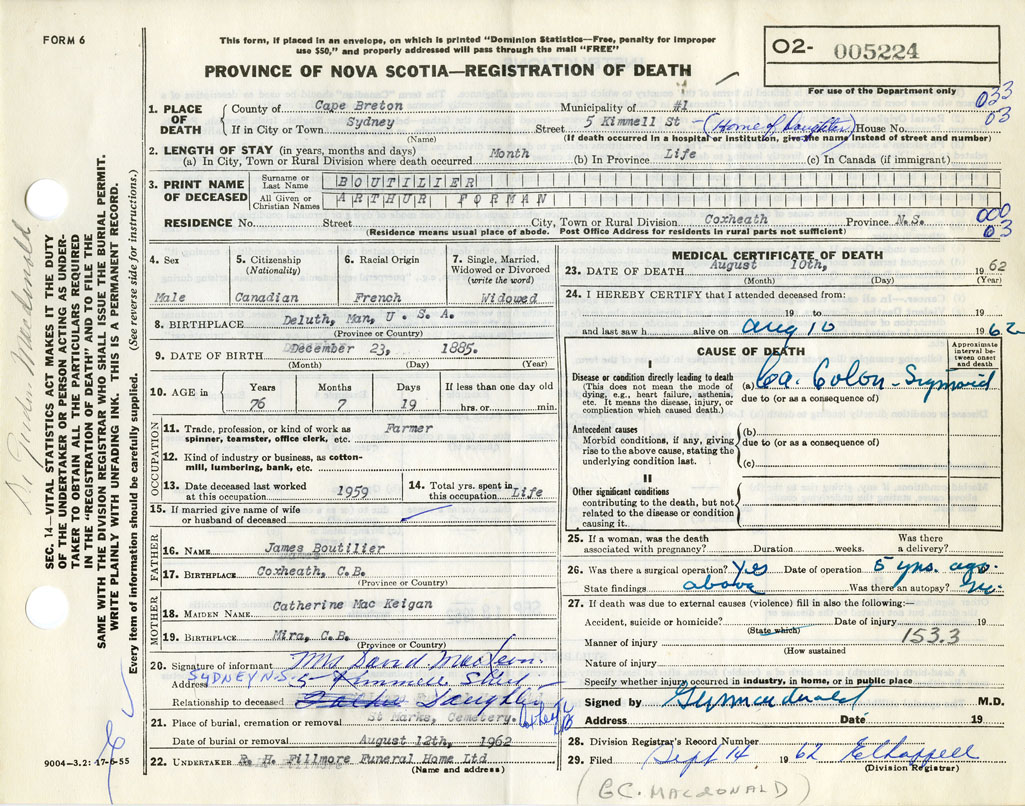 FORM 6
This form, if placed in an envelope, on which is printed "Dominion Statistics—Free, penalty for improper
use $50," and properly addressed will pass through the mail "FREE"
PROVINCE OF NOVA SCOTIA—REGISTRATION OF DEATH
O2- 005224
For use of the Department only
033
03
1. PLACE OF DEATH
County of Cape Breton Municipality of #1
If in City or Town Sydney Street 5 Kimmell St - (Home of Daughter) House No.
(Name) (If death occurred in a hospital or institution, give the name instead of street and number)
2. LENGTH OF STAY (in years, months and days)
(a) In City, Town or Rural Division where death occurred Month (b) In Province Life (c) In Canada (if immigrant)
3. PRINT NAME OF DECEASED
Surname or Last Name BOUTILIER
All Given or Christian Names ARTHUR FORMAN
RESIDENCE No. Street City, Town or Rural Division Coxheath Province N.S.
(Residence means usual place of abode. Post Office Address for residents in rural parts not sufficient)
000
03
4. Sex
Male
5. Citizenship
(Nationality)
Canadian
6. Racial Origin
French
7. Single, Married,
Widowed or Divorced
(write the word)
Widowed
8. BIRTHPLACE Deluth, Man, U. S. A.
(Province or Country)
9. DATE OF BIRTH December 23, 1885.
(Month) (Day) (Year)
10. AGE in
Years Months Days If less than one day old
76 7 19 hrs. or min.
OCCUPATION
11. Trade, profession, or kind of work as Farmer
spinner, teamster, office clerk, etc.
12. Kind of industry or business, as cotton-
mill, lumbering, bank, etc.
13. Date deceased last worked
at this occupation 1959
14. Total yrs. spent in
this occupation Life
15. If married give name of wife
or husband of deceased
FATHER
16. NAME James Boutilier
17. BIRTHPLACE Coxheath, C.B.
(Province or Country)
MOTHER
18. MAIDEN NAME Catherine Mac Keigan
19. BIRTHPLACE Mira, C.B.
(Province or Country)
20. Signature of informant Mrs David MacLeon
Address SYDNEY N.S. 5
Relationship to deceased Father Daughter
21. Place of burial, cremation or removal St Marks, Cemetery.
Date of burial or removal August 12th, 1962
22. UNDERTAKER A. H. Fillmore Funeral Home Ltd
(Name and address)
MEDICAL CERTIFICATE OF DEATH
23. DATE OF DEATH August 10th, 1962
(Month) (Day) (Year)
24. I HEREBY CERTIFY that I attended deceased from:
19 to 19
and last saw h alive on Aug 10 1962
CAUSE OF DEATH
Approximate
interval be-
tween onset
and death
I
Disease or condition directly leading to death
(This does not mean the mode of
dying, e.g., heart failure, asthenia,
etc. It means the disease, injury, or
complication which caused death.)
(a) Ca. Colon - Sigmoid
due to (or as a consequence of)
Antecedent causes
Morbid conditions, if any, giving
rise to the above cause, stating the
underlying condition last.
(b)
due to (or as a consequence of)
(c)
II
Other significant conditions
contributing to the death, but not
related to the disease or condition
causing it.
25. If a woman, was the death
associated with pregnancy? Duration weeks. Was there
a delivery?
26. Was there a surgical operation? Yes Date of operation 5 yrs. ago.
State findings above Was there an autopsy? No.
27. If death was due to external causes (violence) fill in also the following:—
Accident, suicide or homicide? Date of injury 19
(State which)
Manner of injury 153.3
(How sustained
Nature of injury
Specify whether injury occurred in industry, in home, or in public place
Signed by M.D.
Address Date 19
28. Division Registrar's Record Number
29. Filed Sept 14 1962
(Division Registrar)
(GC. MACDONALD)
SEC. 14—VITAL STATISTICS ACT MAKES IT THE DUTY
OF THE UNDERTAKER OR PERSON ACTING AS UNDER-
TAKER TO OBTAIN ALL THE PARTICULARS REQUIRED
IN THE "REGISTRATION OF DEATH" AND TO FILE THE
SAME WITH THE DIVISION REGISTRAR WHO SHALL ISSUE THE BURIAL PERMIT.
WRITE PLAINLY WITH UNFADING INK. THIS IS A PERMANENT RECORD.
Every item of information should be carefully supplied. (See reverse side for instructions.)
9004—3.2: 17-6-55